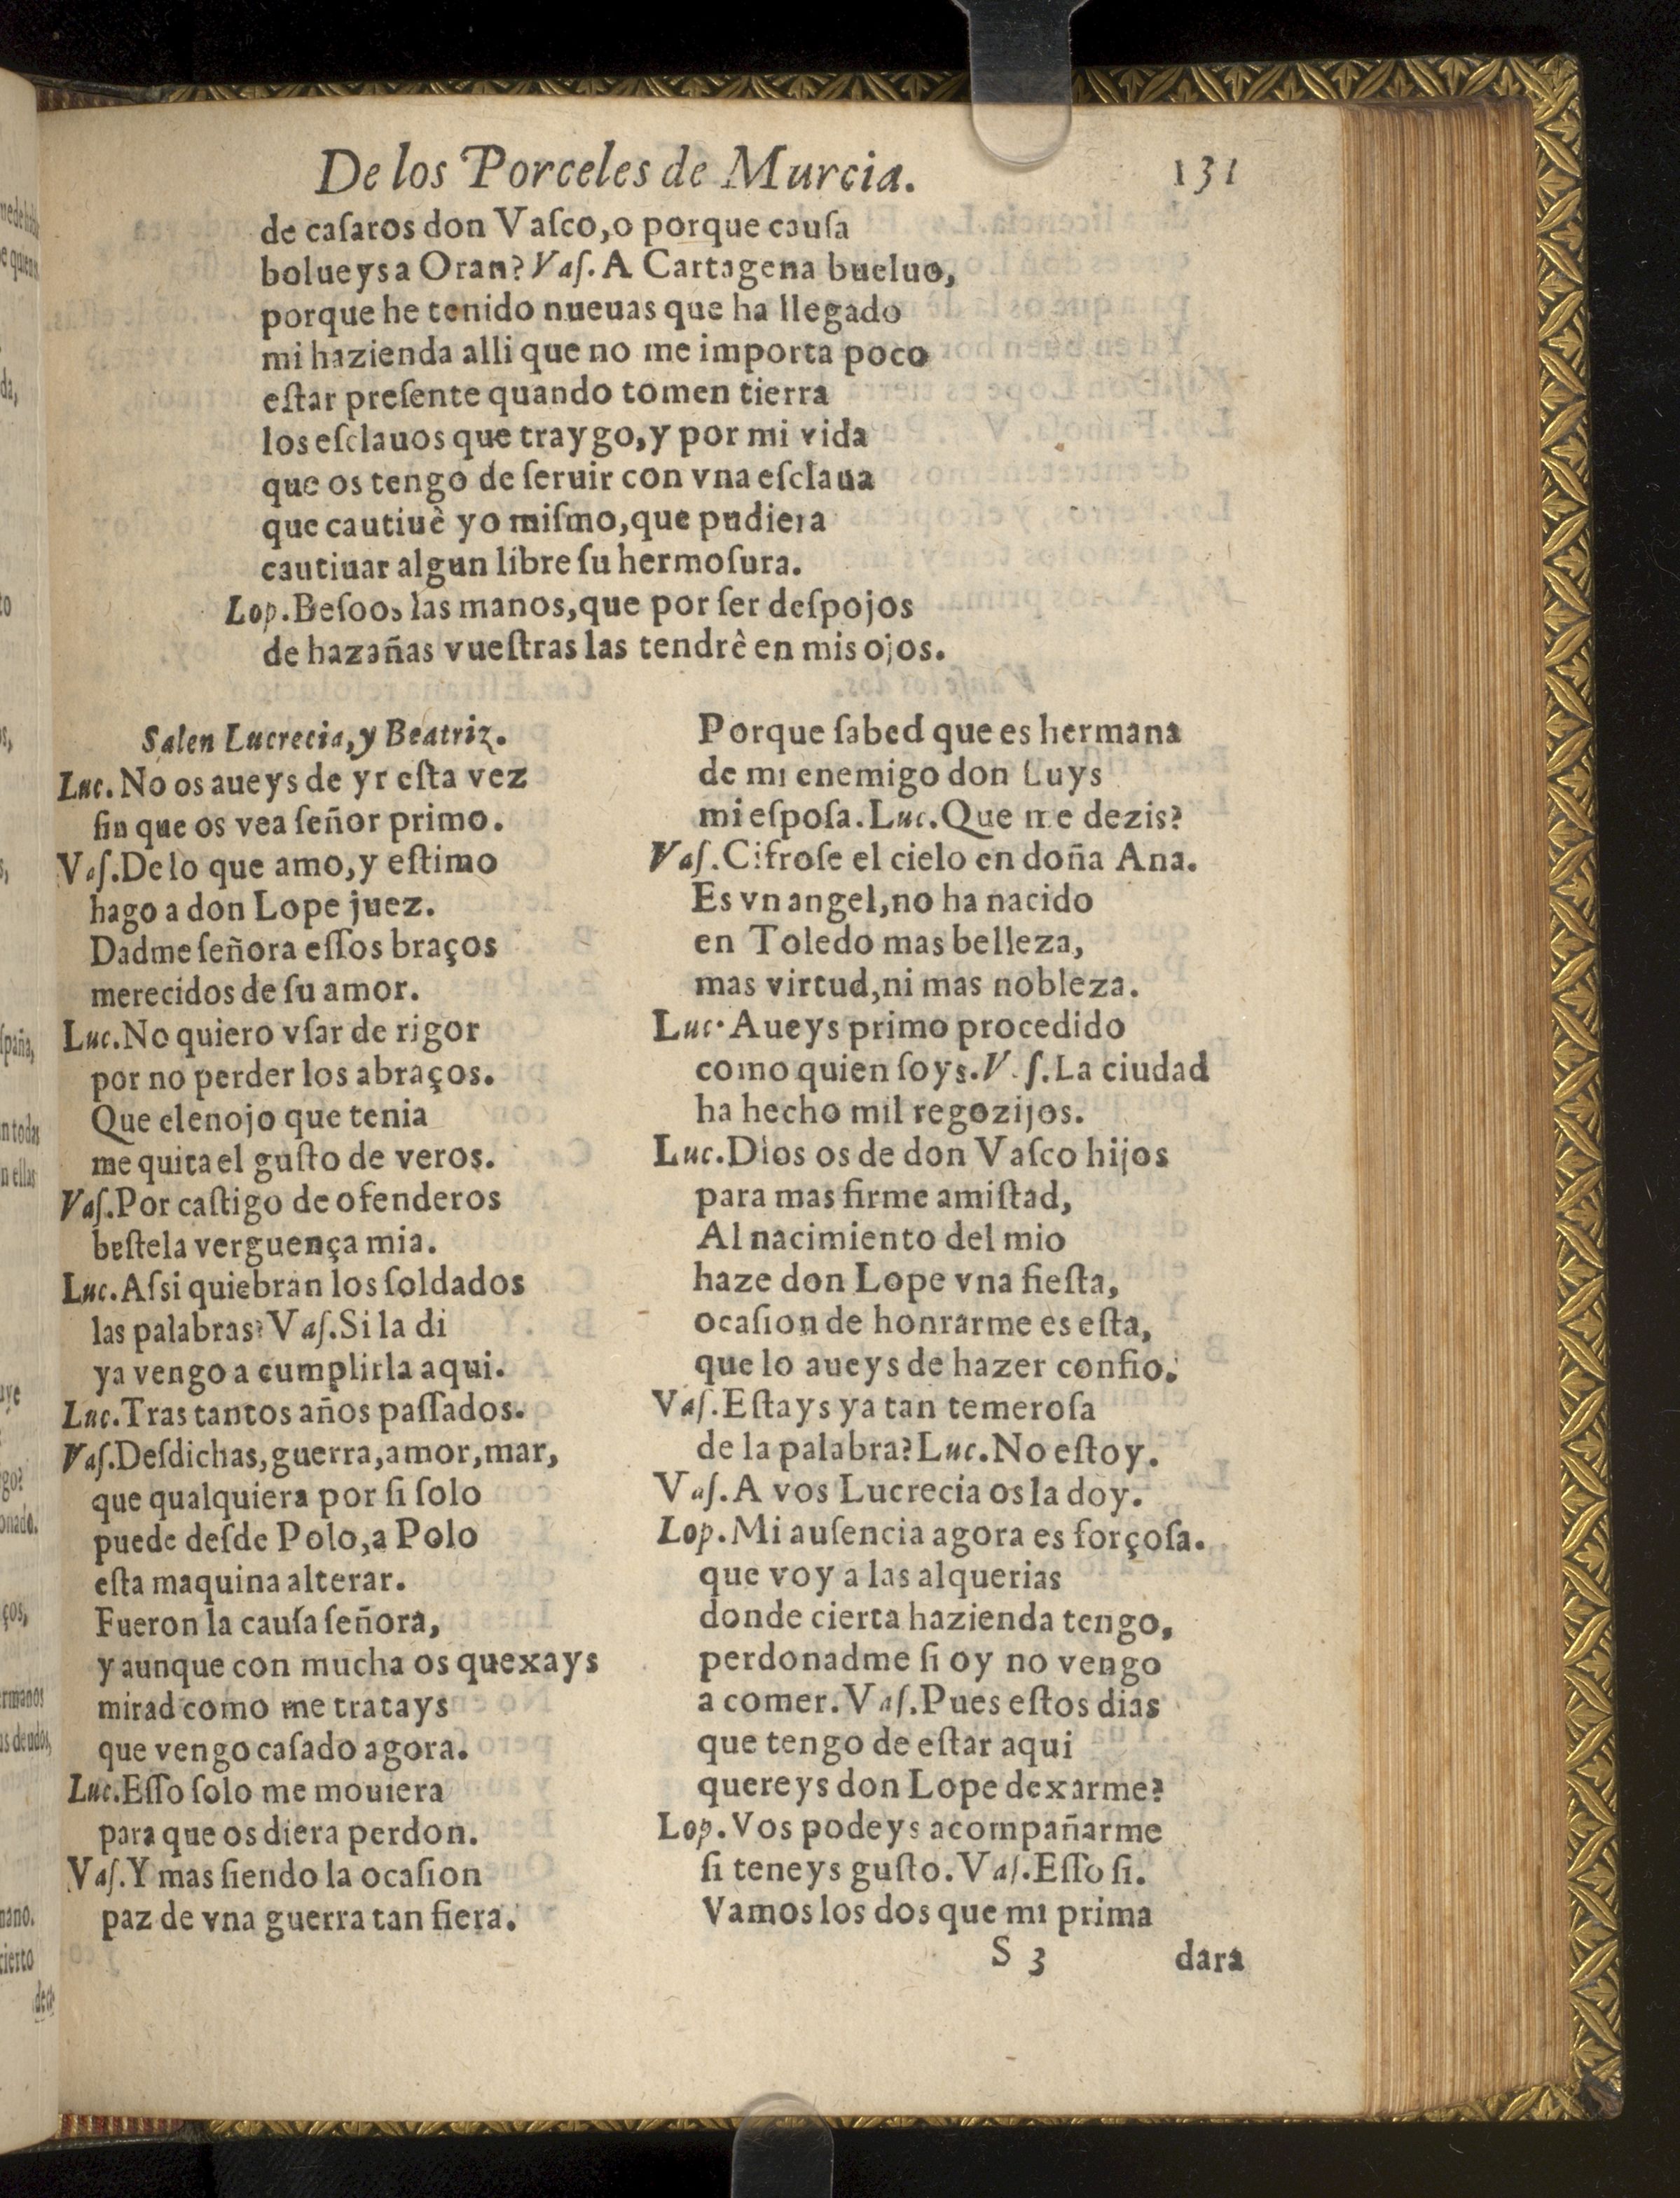 De los Porceles de Murcia. 131
de caſaros don Vaſco,o porque cauſa
bolueys a Oran? Vaſ. A Cartagena bueluo,
porque he tenido nueuas que ha llegado
mi hazienda alli que no me importa poco
eſtar preſente quando tomen tierra
los eſclauos que traygo,y por mi vida
que os tengo de ſeruir con vna eſclaua
que cautiuè yo miſmo,que pudiera
cautiuar algun libre ſu hermoſura.
Lop. Beſoos las manos,que por ſer deſpojos
de hazañas vueſtras las tendrè en mis ojos.
Salen Lucrecia,y Beatriz.
Luc. No os aueys de yr eſta vez
ſin que os vea ſeñor primo.
Vaſ. De lo que amo,y eſtimo
hago a don Lope juez.
Dadme ſeñora eſſos braços
merecidos de ſu amor.
Luc. No quiero vſar de rigor
por no perder los abraços.
Que el enojo que tenia
me quita el guſto de veros.
Vaſ. Por caſtigo de ofenderos
beſtela verguença mia.
Luc. Aſsi quiebran los ſoldados
las palabras? Vaſ. Si la di
ya vengo a cumplirla aqui.
Luc. Tras tantos años paſſados.
Vaſ. Deſdichas,guerra,amor,mar,
que qualquiera por ſi ſolo
puede deſde Polo,a Polo
eſta maquina alterar.
Fueron la cauſa ſeñora,
y aunque con mucha os quexays
mirad como me tratays
que vengo caſado agora.
Luc. Eſſo ſolo me mouiera
para que os diera perdon.
Vaſ. Y mas ſiendo la ocaſion
paz de vna guerra tan fiera.
Porque ſabed que es hermana
de mi enemigo don Luys
mi eſpoſa. Luc. Que me dezis?
Vaſ. Cifroſe el cielo en doña Ana.
Es vn angel,no ha nacido
en Toledo mas belleza,
mas virtud,ni mas nobleza.
Luc. Aueys primo procedido
como quien ſoys. V ſ. La ciudad
ha hecho mil regozijos.
Luc. Dios os de don Vaſco hijos
para mas firme amiſtad,
Al nacimiento del mio
haze don Lope vna fieſta,
ocaſion de honrarme es eſta,
que lo aueys de hazer confio.
Vaſ. Eſtays ya tan temeroſa
de la palabra? Luc. No eſtoy.
Vaſ. A vos Lucrecia os la doy.
Lop. Mi auſencia agora es forçoſa.
que voy a las alquerias
donde cierta hazienda tengo,
perdonadme ſi oy no vengo
a comer. Vaſ. Pues eſtos dias
que tengo de eſtar aqui
quereys don Lope dexarme?
Lop. Vos podeys acompañarme
ſi teneys guſto. Vaſ. Eſſo ſi.
Vamos los dos que mi prima
S 3 dara